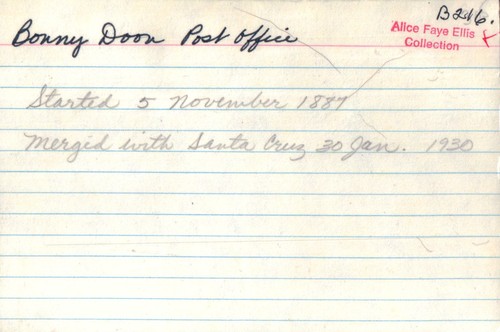 B216.
Alice Faye Ellis
Collection
Bonny Doon Post Office
Started 5 November 1887
Merged with Santa Cruz 30 Jan. 1930